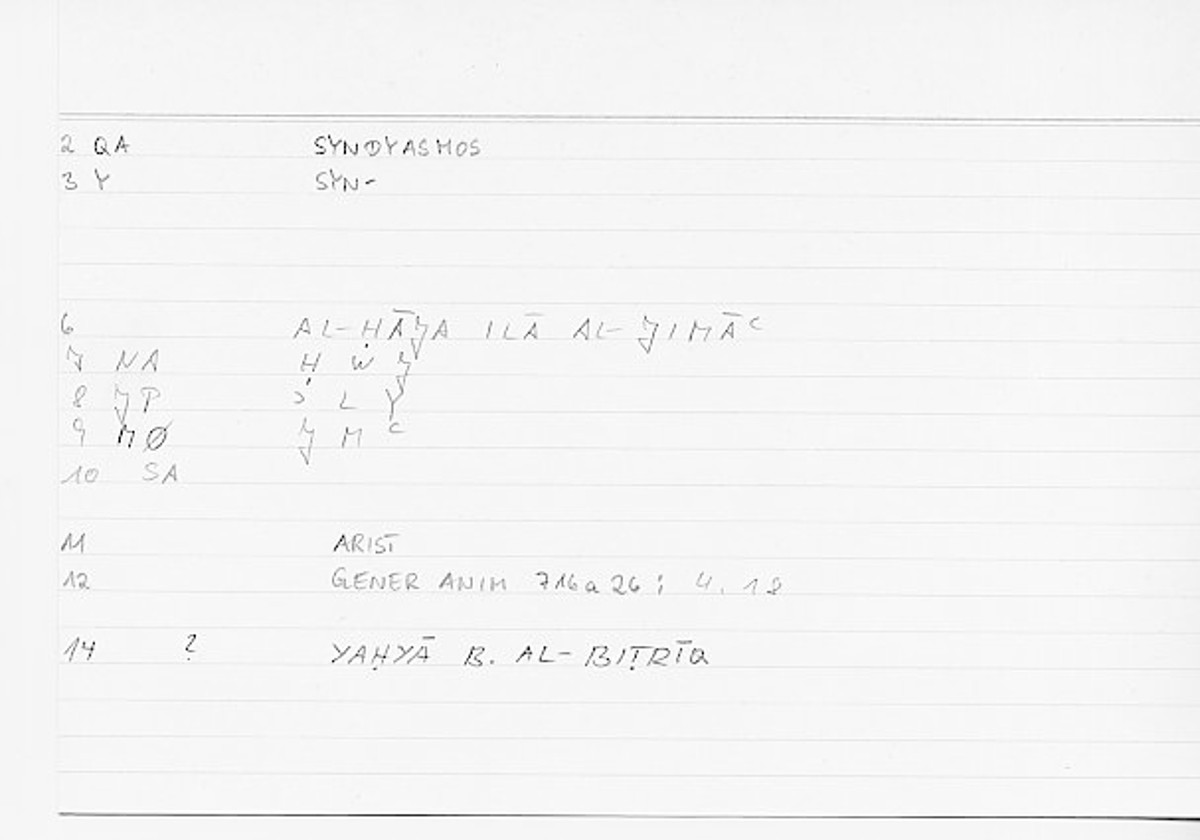 2 QA SYNDYASMOS
3 Y SYN-
6 AL-ḤĀJA ILĀ AL-JIMĀʿ
7 NA Ḥ W J
8 JP ʾ L Y
9 MØ J M ʿ
10 SA
11 ARIST
12 GENER ANIM 716a26; 4.18
14 ? YAḤYĀ B. AL-BIṬRĪQ